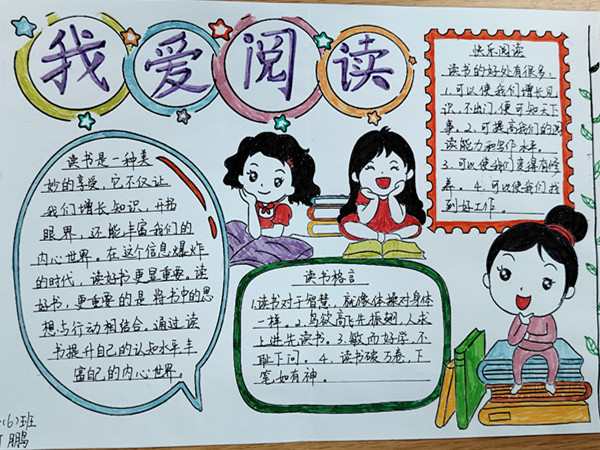 我爱阅读
读书是一种美
妙的享受，它不仅让
我们增长知识，开拓
眼界，还能丰富我们的
内心世界。在这个信息爆炸
的时代，读好书更显重要。读
好书，更重要的是将书中的思
想与行动相结合。通过读
书提升自己的认知水平丰
富自己的内心世界。
快乐阅读
读书的好处有很多，
1.可以使我们增长见
识，不出门，便可知天下
事。2.可提高我们的阅
读能力和写作水平。
3.可以使我们变得有修
养。4.可以使我们找
到好工作。
读书格言
1.读书对于智慧，就像体操对身体
一样。2.鸟欲高飞先振翅，人求
上进先读书。3.敏而好学，不
耻下问。4.读书破万卷，下
笔如有神。
(6)班
鹏